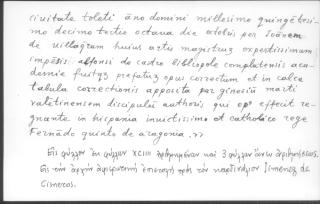 ciuitate toleti āno domini millesimo quingētesi-
mo decimo tertio octaua die octobris per Joānem
de uillaq̄ram huius artis magistrum expertissimum
impēsis alfonsi de castro bibliopole complutensis aca-
demie fuitq3 prefatum opus correctum et in calce
tabula correctionis apposita per ginesiū marti
valētinensem discipulū authoris, qui op9 effecit re-
gnante in hispania inuictissimo et catholico rege
Fernādo quinto de aragonia.
Εἰς φύλλον ἓν φύλλων XCIIII ἠριθμημένων καὶ 3 φύλλων ἄνευ ἀριθμήσεως.
Εἰς τὴν ἀρχὴν ἀφιερωτικὴ ἐπιστολὴ πρὸς τὸν καρδινάλιον Jimenez de
Cisneros.